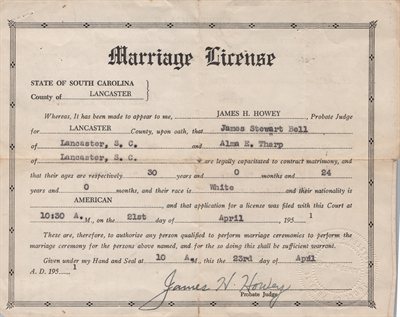 Marriage License
STATE OF SOUTH CAROLINA
County of LANCASTER
Whereas, It has been made to appear to me, JAMES H. HOWEY, Probate Judge
for LANCASTER County, upon oath, that James Stewart Bell
of Lancaster, S. C. and Alma E. Tharp
of Lancaster, S. C. are legally capacitated to contract matrimony, and
that their ages are respectively 30 years and 0 months and 24
years and 0 months, and their race is White and their nationality is
AMERICAN, and that application for a license was filed with this Court at
10:30 A. M., on the 21st day of April, 195 1
These are, therefore, to authorize any person qualified to perform marriage ceremonies to perform the
marriage ceremony for the persons above named, and for the so doing this shall be sufficient warrant.
Given under my Hand and Seal at 10 A. M., this the 23rd day of April
A. D. 195 1
James H. Howey
Probate Judge